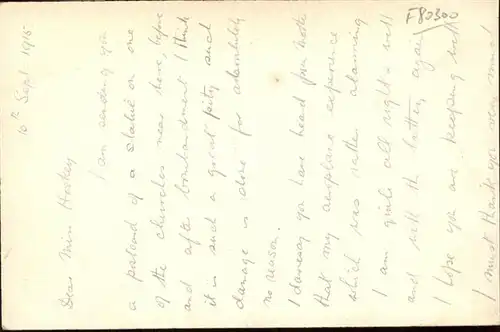 F80300
10th Sept 1915
Dear Miss
I am sending you
a postcard of a statue on one
of the churches near here, before
and after bombardment I think
it is such a great pity such
damage is done for absolutely
no reason.
I daresay you have heard from
that my aeroplane experience
which was rather alarming
I am quite all right & well
and with the battery again
I hope you are keeping well
I must thank you very much